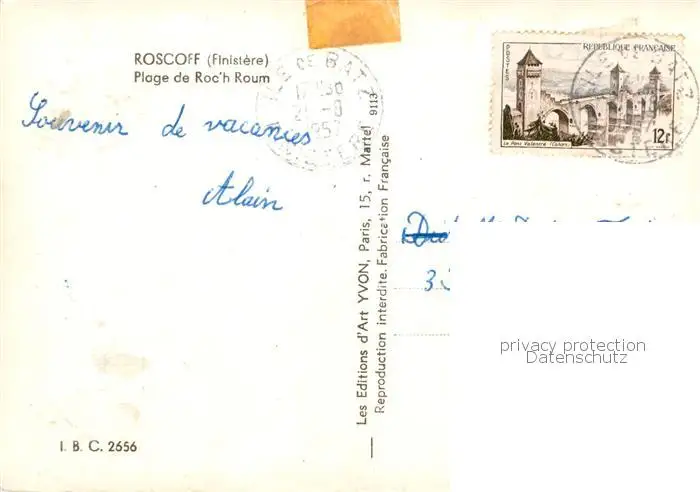 ROSCOFF (Finistère)
Plage de Roc'h Roum
Souvenir de vacances
Alain
I. B. C. 2656
Les Editions d'Art YVON, Paris, 15, r. Martel 9113
Reproduction interdite. Fabrication Française
ILE DE BATZ
FINISTERE
POSTES
REPUBLIQUE FRANÇAISE
Le Pont Valentré (Cahors)
12F
3
privacy protection
Datenschutz